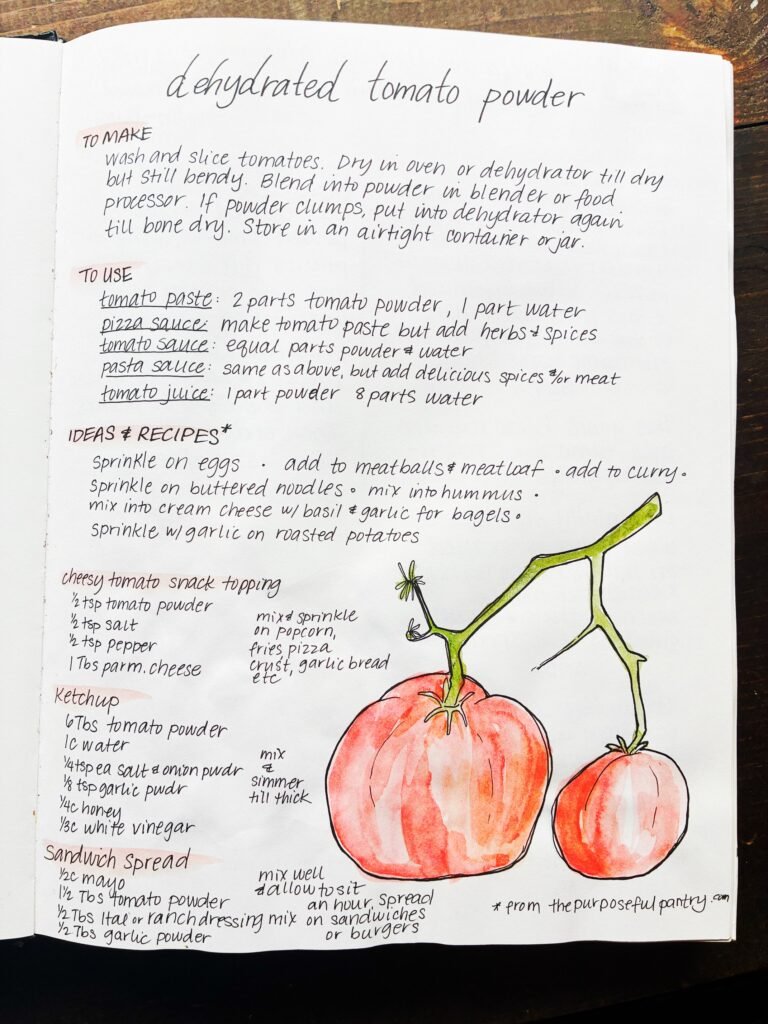 dehydrated tomato powder
TO MAKE
wash and slice tomatoes. Dry in oven or dehydrator till dry
but still bendy. Blend into powder in blender or food
processor. If powder clumps, put into dehydrator again
till bone dry. Store in an airtight container or jar.
TO USE
tomato paste: 2 parts tomato powder, 1 part water
pizza sauce: make tomato paste but add herbs & spices
tomato sauce: equal parts powder & water
pasta sauce: same as above, but add delicious spices &/or meat
tomato juice: 1 part powder 8 parts water
IDEAS & RECIPES*
sprinkle on eggs · add to meatballs & meatloaf · add to curry ·
sprinkle on buttered noodles · mix into hummus ·
mix into cream cheese w/ basil & garlic for bagels ·
sprinkle w/ garlic on roasted potatoes
cheesy tomato snack topping
½ tsp tomato powder
½ tsp salt
½ tsp pepper
1 Tbs parm. cheese
mix & sprinkle
on popcorn,
fries, pizza
crust, garlic bread
etc
Ketchup
6 Tbs tomato powder
1c water
¼ tsp ea salt & onion pwdr
⅛ tsp garlic pwdr
¼c honey
⅓c white vinegar
mix
&
simmer
till thick
Sandwich Spread
½c mayo
1½ Tbs tomato powder
½ Tbs Ital or ranch dressing mix
½ Tbs garlic powder
mix well
& allow to sit
an hour, spread
on sandwiches
or burgers
* from thepurposefulpantry.com